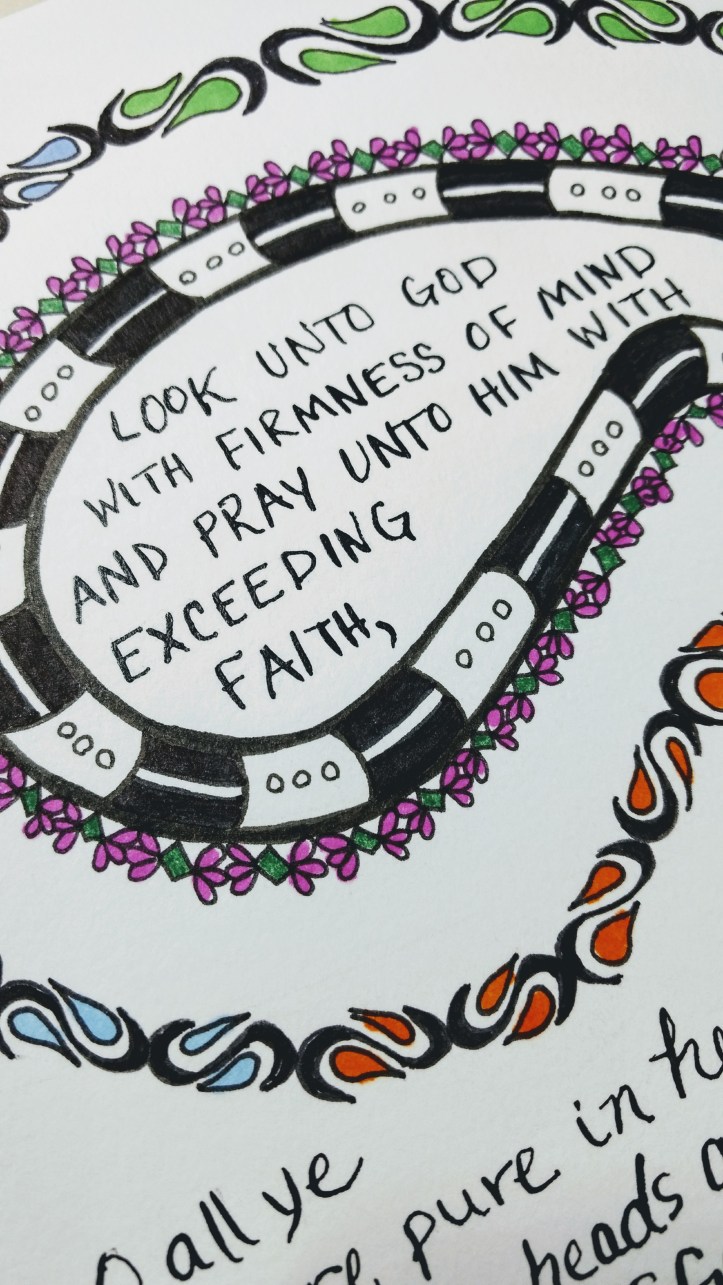 LOOK UNTO GOD
WITH FIRMNESS OF MIND
AND PRAY UNTO HIM WITH
EXCEEDING
FAITH,
O all ye
pure in
heads